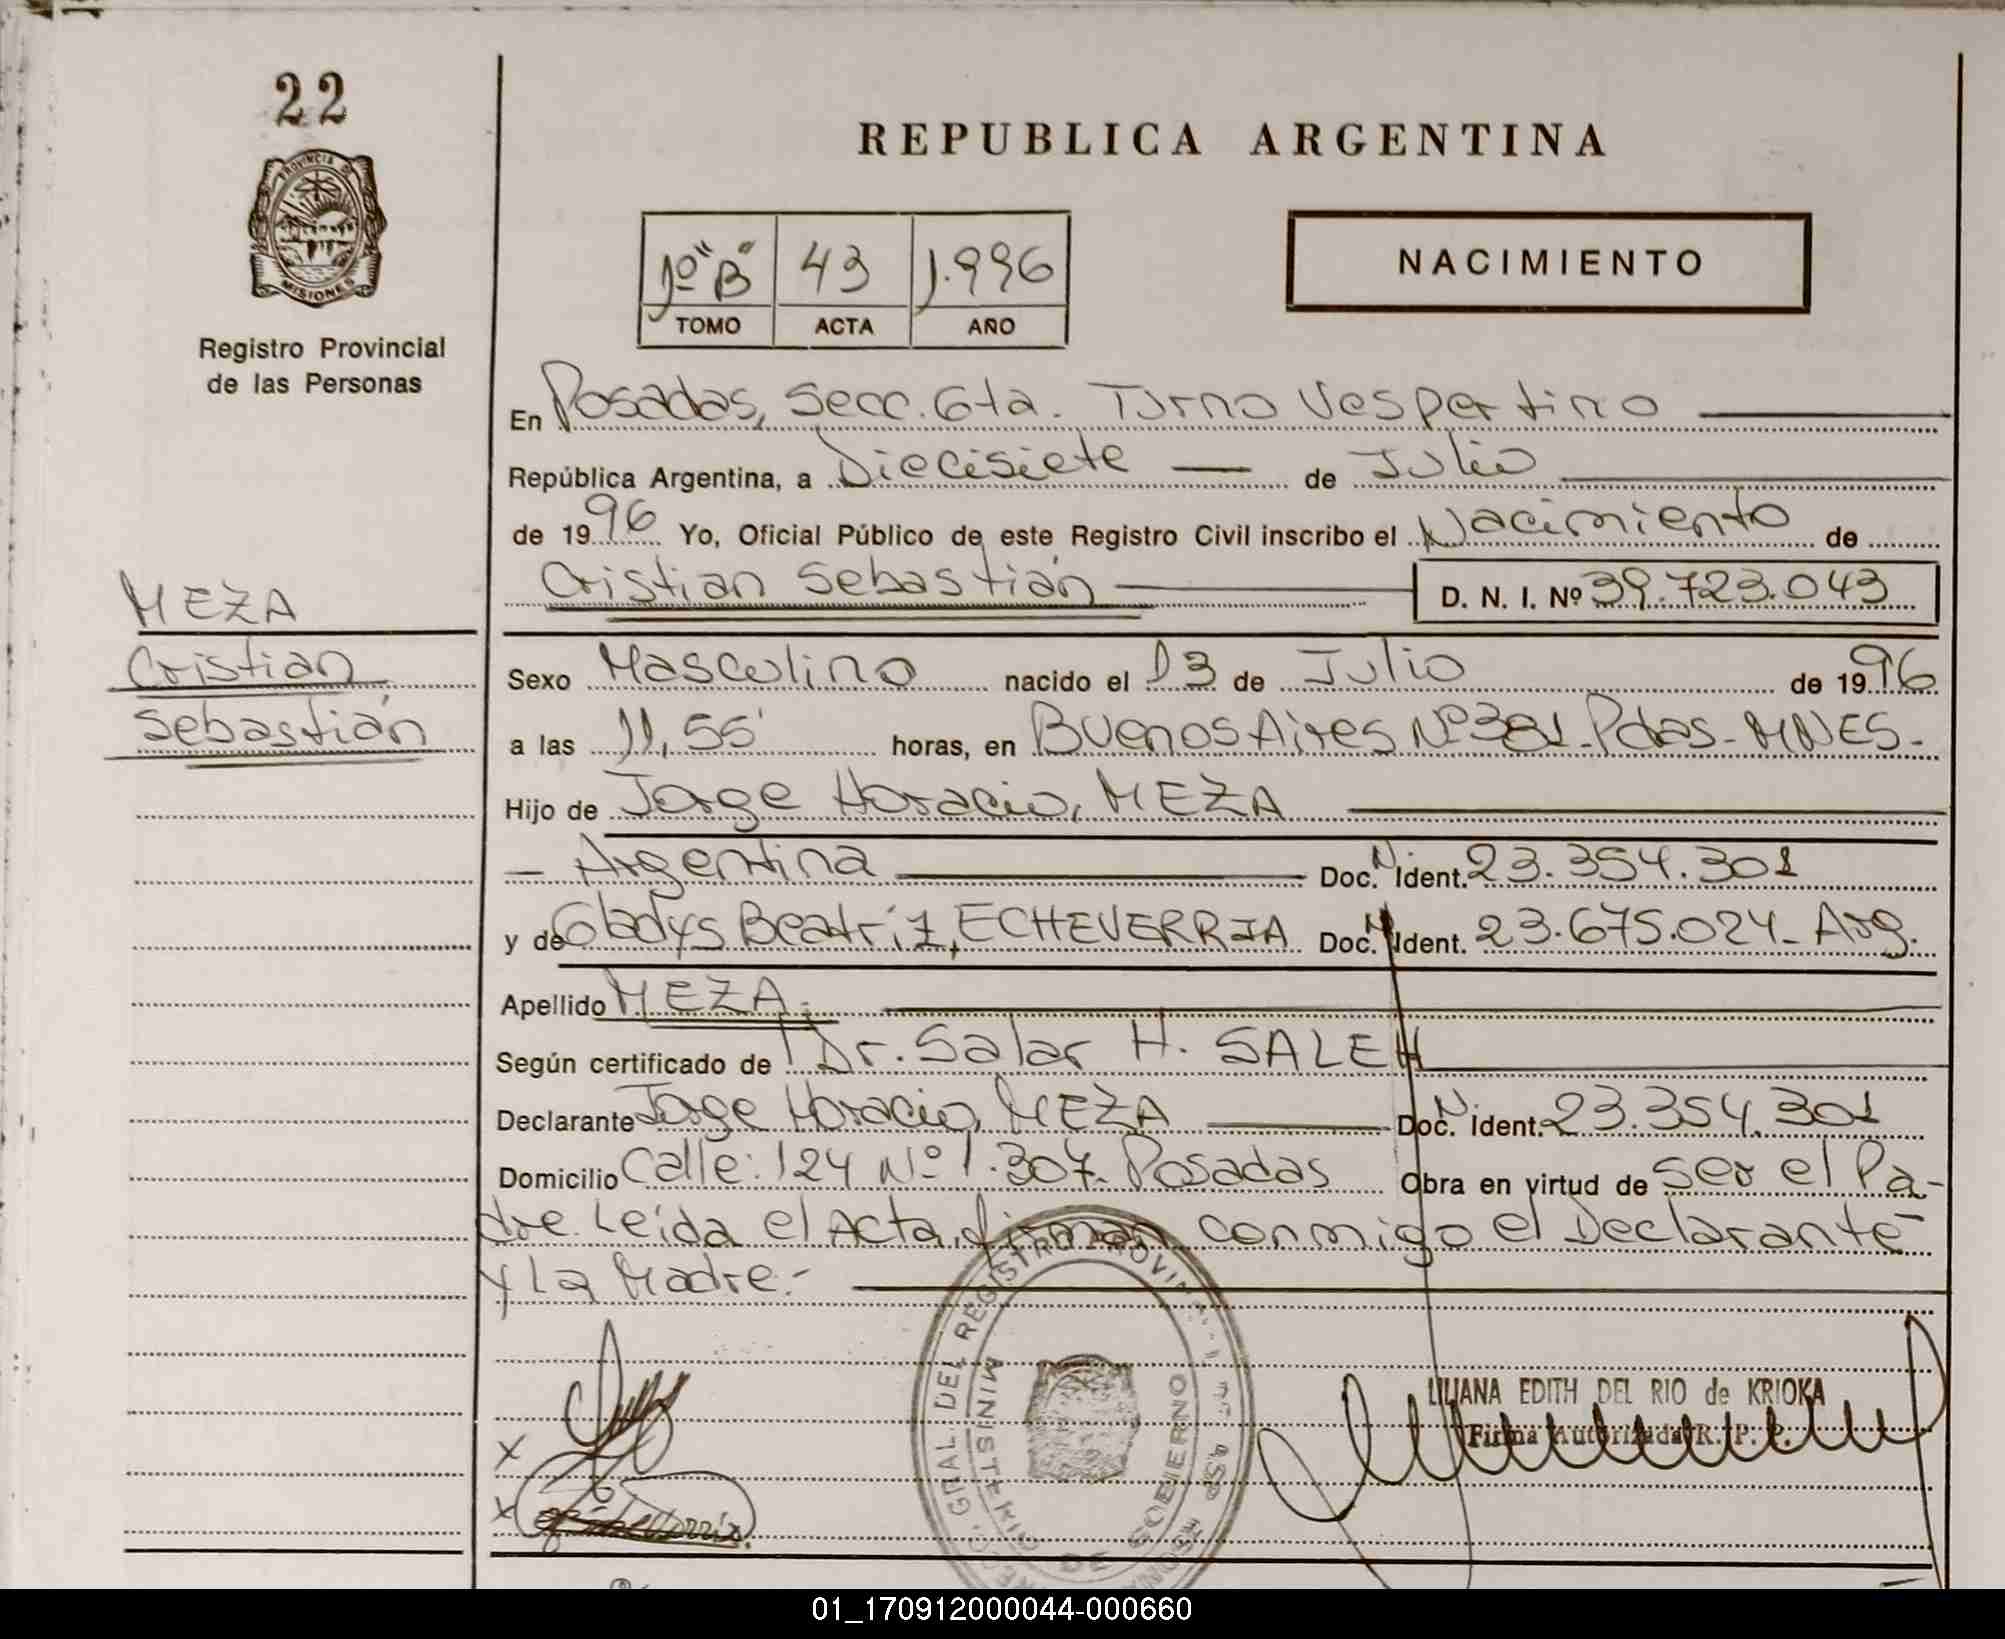 22
PROVINCIA DE
MISIONES
Registro Provincial
de las Personas
MEZA
Cristian
Sebastián
REPUBLICA ARGENTINA
1º "B" 43 1.996
TOMO ACTA AÑO
NACIMIENTO
En Posadas, Secc. 6ta. Turno Vespertino
República Argentina, a Diecisiete de Julio
de 1996 Yo, Oficial Público de este Registro Civil inscribo el Nacimiento de
Cristian Sebastián D. N. I. Nº 39.723.043
Sexo Masculino nacido el 13 de Julio de 1996
a las 11,55' horas, en Buenos Aires Nº 381-Pdas-MNES-
Hijo de Jorge Horacio, MEZA
- Argentina Doc. N. Ident. 23.354.301
y de Gladys Beatríz, ECHEVERRIA Doc. N. Ident. 23.675.024- Arg.
Apellido MEZA.
Según certificado de Dr. Salar H. SALEH
Declarante Jorge Horacio, MEZA Doc. N. Ident. 23.354.301
Domicilio Calle: 124 Nº 1.307- Posadas Obra en virtud de ser el Pa-
dre Leída el Acta, firman conmigo el Declarante
y La Madre.-
LILIANA EDITH DEL RIO de KRIOKA
Firma Autorizada R. P. P.
GRAL. DEL REGISTRO
DE GOBIERNO
x
x
01_170912000044-000660